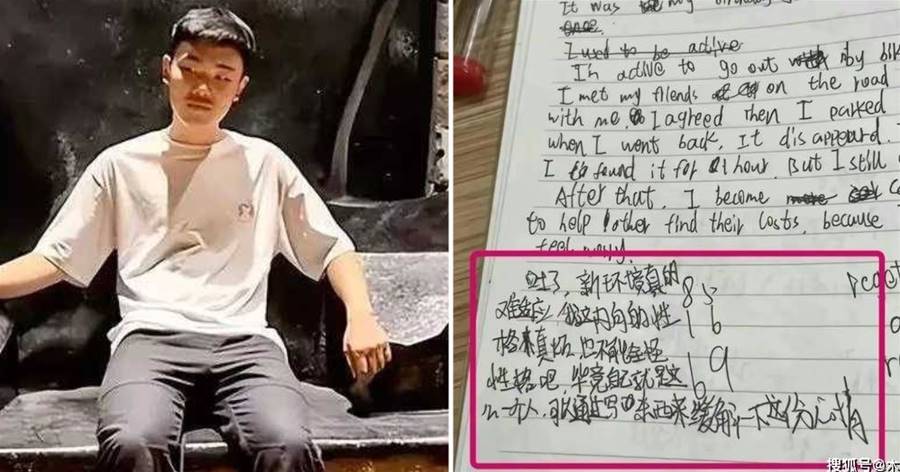 It was my birthday
I used to be active
I'm active to go out by bik
I met my friends on the road
with me. I agreed then I parked
when I went back, It disappeard.
I found it for 1 hour. But I still
After that, I become
to help other find their losts, because
feel worry.
吐了,新环境真的
85
难适应,我这内向的性
16
格来真坏,也不能全怪
性格吧,毕竟自己就是这
69
么一个人,可以通过写 东西来缓解一下这份心情
搜狐号@木